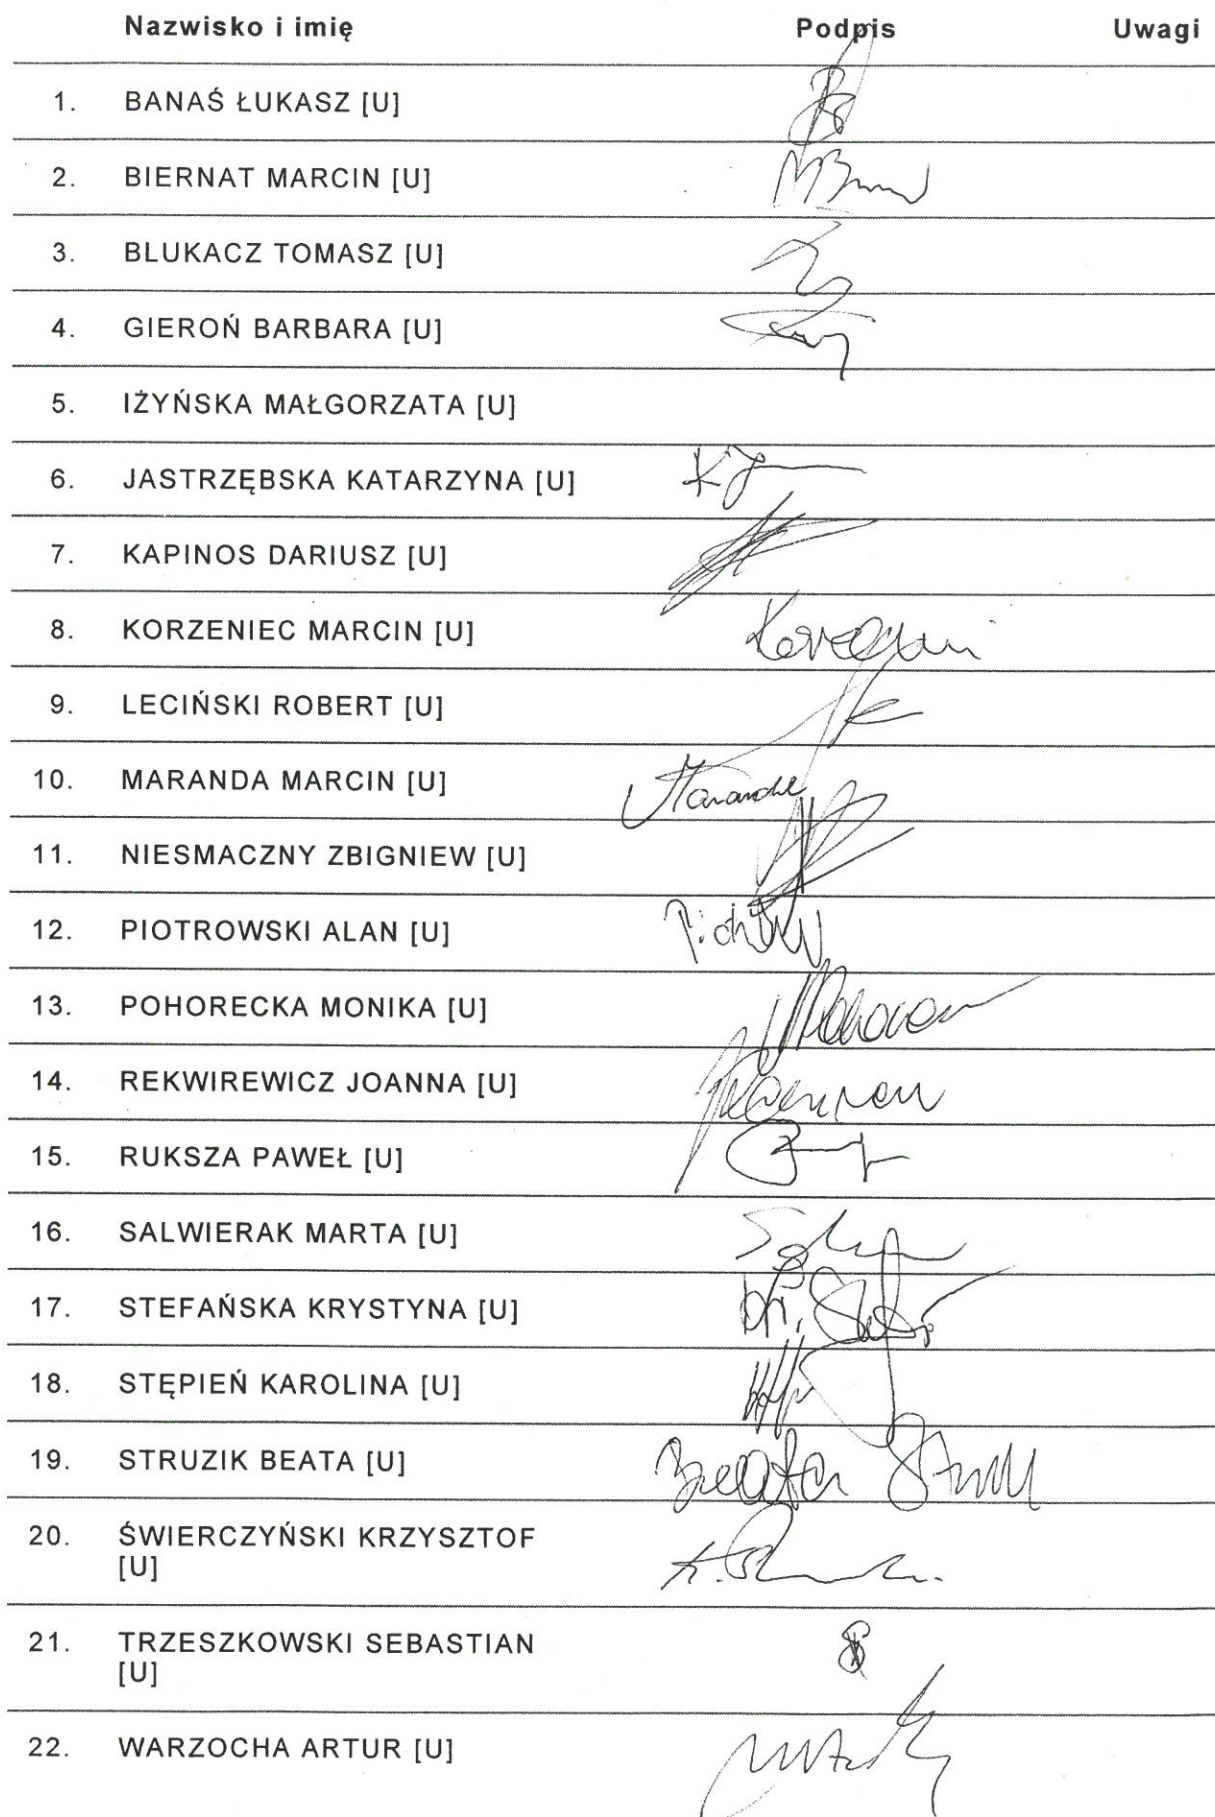 Nazwisko i imię Podpis Uwagi
1. BANAŚ ŁUKASZ [U]
2. BIERNAT MARCIN [U]
3. BLUKACZ TOMASZ [U]
4. GIEROŃ BARBARA [U]
5. IŻYŃSKA MAŁGORZATA [U]
6. JASTRZĘBSKA KATARZYNA [U]
7. KAPINOS DARIUSZ [U]
8. KORZENIEC MARCIN [U]
9. LECIŃSKI ROBERT [U]
10. MARANDA MARCIN [U]
11. NIESMACZNY ZBIGNIEW [U]
12. PIOTROWSKI ALAN [U]
13. POHORECKA MONIKA [U]
14. REKWIREWICZ JOANNA [U]
15. RUKSZA PAWEŁ [U]
16. SALWIERAK MARTA [U]
17. STEFAŃSKA KRYSTYNA [U]
18. STĘPIEŃ KAROLINA [U]
19. STRUZIK BEATA [U]
20. ŚWIERCZYŃSKI KRZYSZTOF
[U]
21. TRZESZKOWSKI SEBASTIAN
[U]
22. WARZOCHA ARTUR [U]